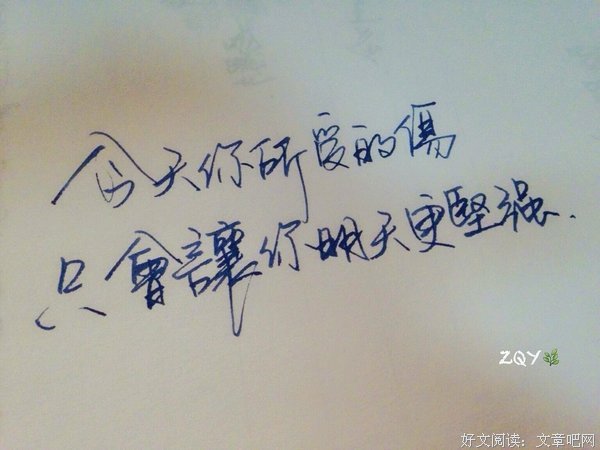 今天你所受的傷
只會讓你明天更堅强.
ZQY
好文阅读：文章吧网